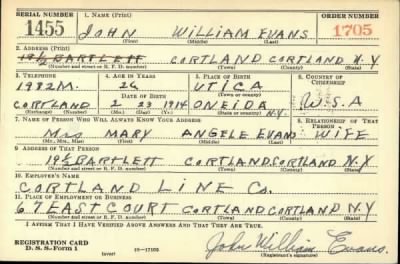 SERIAL NUMBER 1. NAME (Print) ORDER NUMBER
1455 JOHN WILLIAM EVANS 1705
(First) (Middle) (Last)
2. ADDRESS (Print)
19½ BARTLETT CORTLAND CORTLAND N.Y
(Number and street or R. F. D. number) (Town) (County) (State)
3. TELEPHONE 4. AGE IN YEARS 5. PLACE OF BIRTH 6. COUNTRY OF CITIZENSHIP
1982M. 26 UTICA
DATE OF BIRTH (Town or county)
CORTLAND 2 23 1914 ONEIDA N.Y. U.S.A
(Exchange) (Number) (Mo.) (Day) (Yr.) (State or country)
7. NAME OF PERSON WHO WILL ALWAYS KNOW YOUR ADDRESS 8. RELATIONSHIP OF THAT PERSON
Mrs MARY ANGELE EVANS WIFE
(Mr., Mrs., Miss) (First) (Middle) (Last)
9. ADDRESS OF THAT PERSON
19½ BARTLETT CORTLAND CORTLAND N.Y
(Number and street or R. F. D. number) (Town) (County) (State)
10. EMPLOYER'S NAME
CORTLAND LINE Co.
11. PLACE OF EMPLOYMENT OR BUSINESS
67 EAST COURT CORTLAND CORTLAND N.Y
(Number and street or R. F. D. number) (Town) (County) (State)
I AFFIRM THAT I HAVE VERIFIED ABOVE ANSWERS AND THAT THEY ARE TRUE.
REGISTRATION CARD
D. S. S. Form 1 (over) 16—17105 John William Evans.
(Registrant's signature)